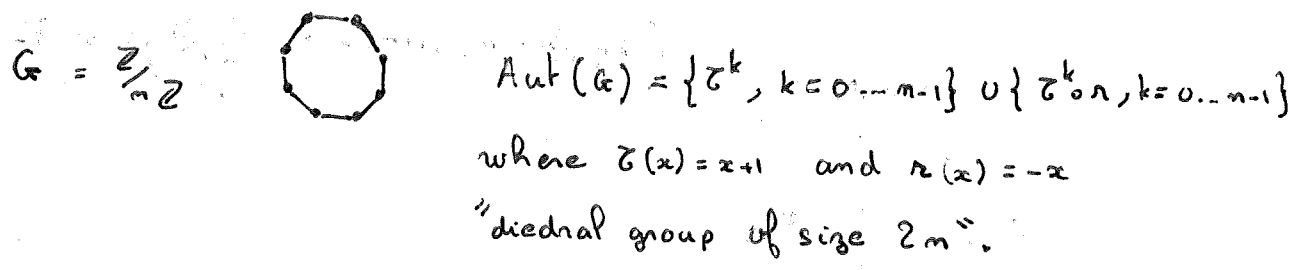 G = ℤ/nℤ Aut(G) = {τ^k, k=0...n-1} ∪ {τ^k∘r, k=0...n-1}
where τ(x) = x+1 and r(x) = -x
"diedral group of size 2n".